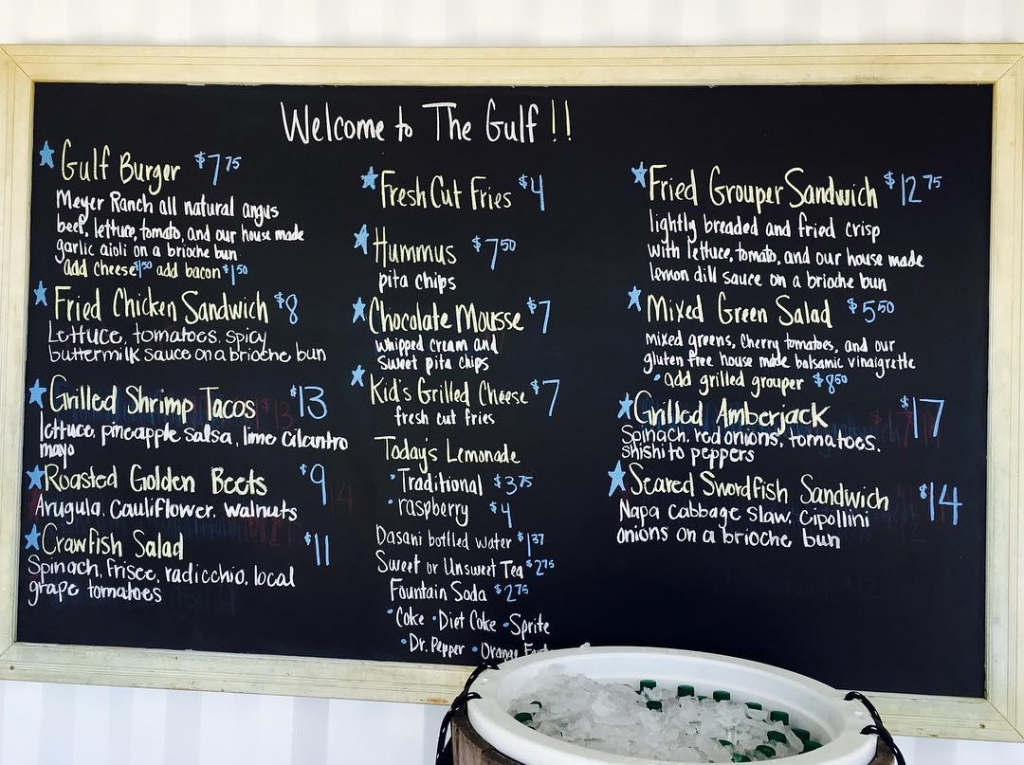 Welcome to The Gulf!!
Gulf Burger $7.75
Meyer Ranch all natural angus
beef, lettuce, tomato, and our house made
garlic aioli on a brioche bun
add cheese $1.50 add bacon $1.50
Fried Chicken Sandwich $8
Lettuce, tomatoes, spicy
buttermilk sauce on a brioche bun
Grilled Shrimp Tacos $13
lettuce, pineapple salsa, lime cilantro
mayo
Roasted Golden Beets $9
Arugula, Cauliflower, walnuts
Crawfish Salad $11
Spinach, Frisee, radicchio, local
grape tomatoes
Fresh Cut Fries $4
Hummus $7.50
pita chips
Chocolate Mousse $7
whipped cream and
Sweet pita chips
Kid's Grilled Cheese $7
fresh cut fries
Today's Lemonade
• Traditional $3.75
• raspberry $4
Dasani bottled water $1.37
Sweet or Unsweet Tea $2.75
Fountain Soda $2.75
• Coke • Diet Coke • Sprite
• Dr. Pepper • Orange
Fried Grouper Sandwich $12.75
lightly breaded and fried crisp
with lettuce, tomato, and our house made
lemon dill sauce on a brioche bun
Mixed Green Salad $5.50
mixed greens, cherry tomatoes, and our
gluten free house made balsamic vinaigrette
• add grilled grouper $8.50
Grilled Amberjack $17
Spinach, red onions, tomatoes,
shishito peppers
Seared Swordfish Sandwich $14
Napa cabbage slaw, Cipollini
onions on a brioche bun